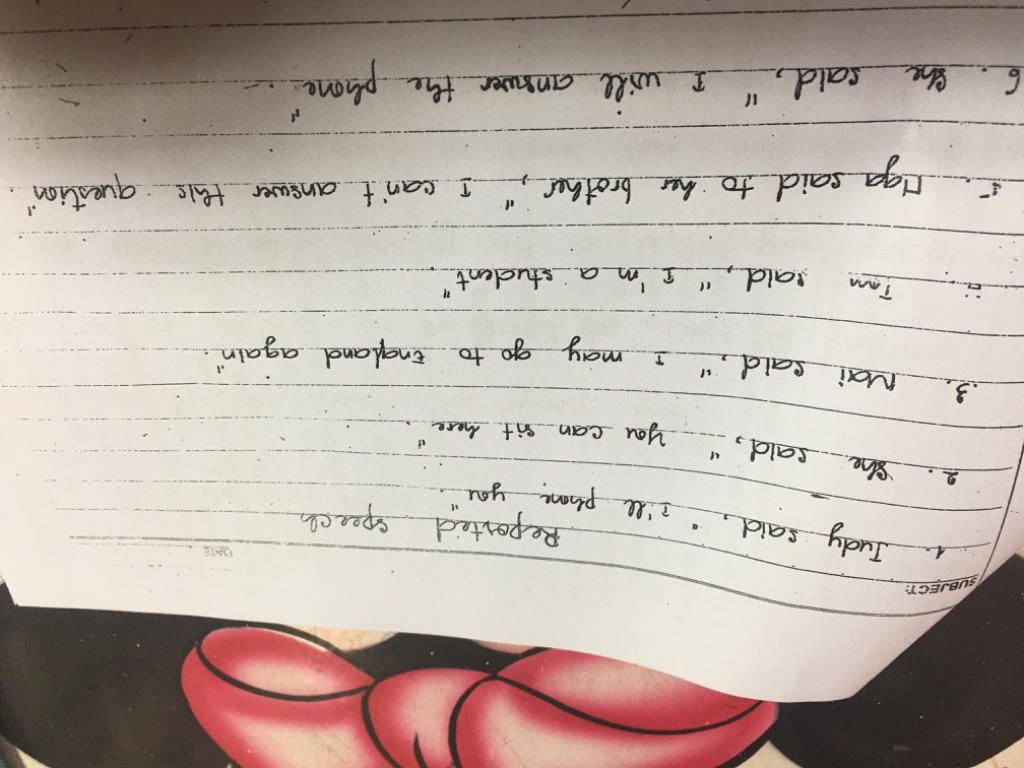 SUBJECT:
DATE
Reported speech
1. Judy said, "I'll phone you".
2. She said, "you can sit here".
3. Mai said, "I may go to England again".
4. Tam said, "I'm a student".
5. Nga said to her brother, "I can't answer this question".
6. She said, "I will answer the phone".